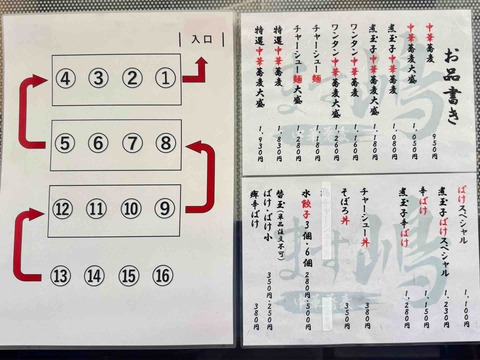 入口
④ ③ ② ①
⑤ ⑥ ⑦ ⑧
⑫ ⑪ ⑩ ⑨
⑬ ⑭ ⑮ ⑯
お品書き
中華蕎麦 950円
中華蕎麦大盛 1,050円
煮玉子中華蕎麦 1,080円
煮玉子中華蕎麦大盛 1,180円
ワンタン中華蕎麦 1,160円
ワンタン中華蕎麦大盛 1,260円
チャーシュー麺 1,180円
チャーシュー麺大盛 1,280円
特選中華蕎麦 1,830円
特選中華蕎麦大盛 1,930円
ばけスペシャル 1,100円
煮玉子ばけスペシャル 1,230円
辛ばけ 1,150円
煮玉子辛ばけ 1,280円
チャーシュー丼 380円
そぼろ丼 350円
水餃子3個・6個 280円・500円
替玉(単品注文不可)
ばけ・ばけ小 350円・250円
郷辛ばけ 380円